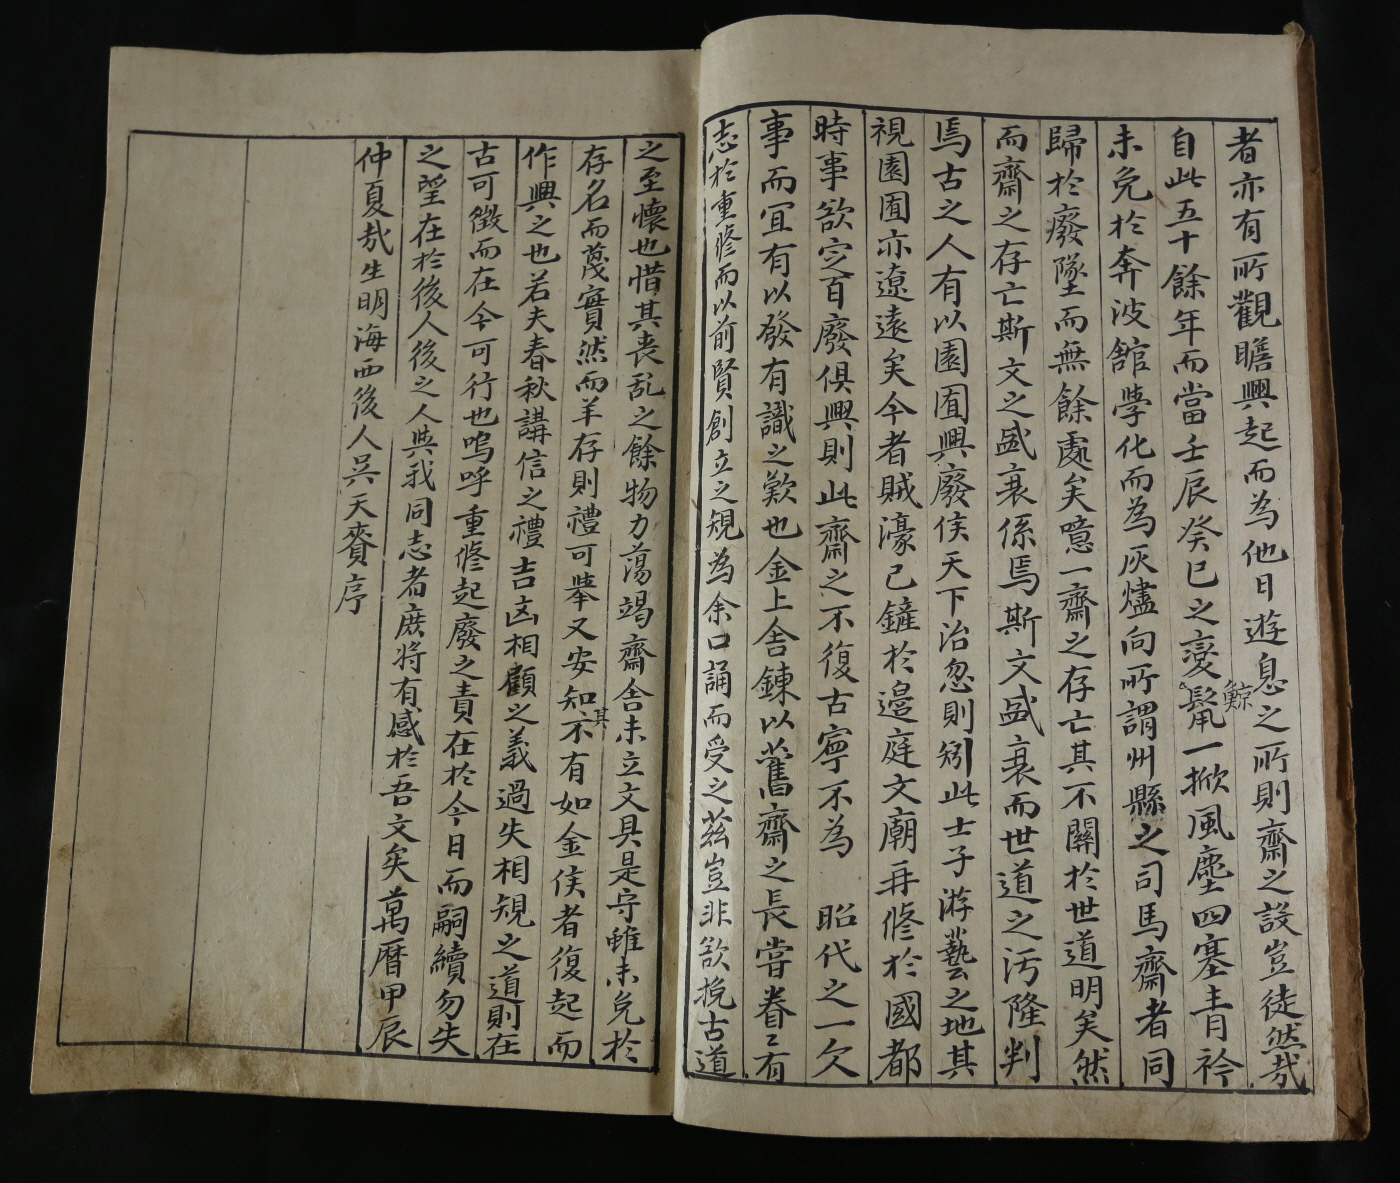 者亦有所觀瞻興起而為他日遊息之所則齋之設豈徒然哉
自此五十餘年而當壬辰癸巳之變鯨鬣一掀風塵四塞青衿
未免於奔波舘學化而為灰燼向所謂州縣之司馬齋者同
歸於廢墜而無餘處矣噫一齋之存亡其不關於世道明矣然
而齋之存亡斯文之盛衰係焉斯文盛衰而世道之汚隆判
焉古之人有以園囿興廢侯天下治忽則矧此士子游藝之地其
視園囿亦遼遠矣今者賊濠已鏟於邊庭文廟再修於國都
時事欲定百廢俱興則此齋之不復古寧不為 昭代之一欠
事而冝有以發有識之歎也金上舍鍊以舊齋之長嘗眷〻有
志於重修而以前賢創立之規為余口誦而受之玆豈非欲挽古道
之至懷也惜其丧乱之餘物力蕩竭齋舍未立文具是守雖未免於
存名而蔑實然而羊存則禮可擧又安知其不有如金侯者復起而
作興之也若夫春秋講信之禮吉凶相顧之義過失相規之道則在
古可徵而在今可行也嗚呼重修起廢之責在於今日而嗣續勿失
之望在於後人後之人與我同志者庶將有感於吾文矣萬曆甲辰
仲夏哉生明海西後人吳天賚序